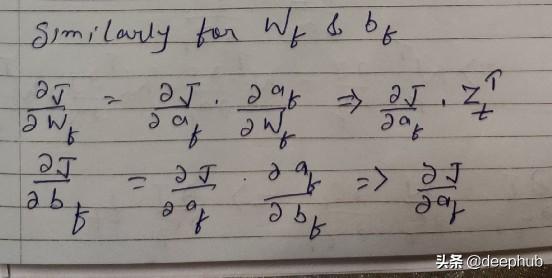 Similarly for W_f & b_f
∂J/∂W_f = ∂J/∂a_f . ∂a_f/∂W_f => ∂J/∂a_f . Z_t^T
∂J/∂b_f = ∂J/∂a_f . ∂a_f/∂b_f => ∂J/∂a_f
头条 @deephub